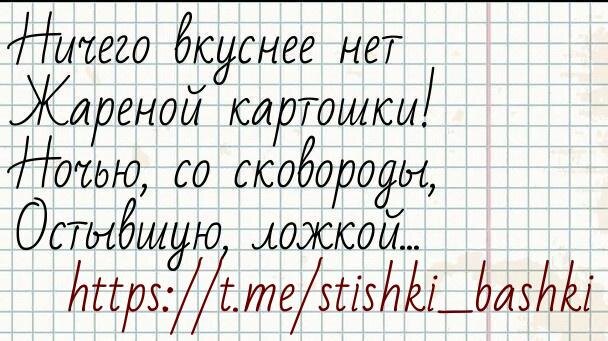 Ничего вкуснее нет
Жареной картошки!
Ночью, со сковороды,
Остывшую, ложкой...
https://t.me/stishki_bashki